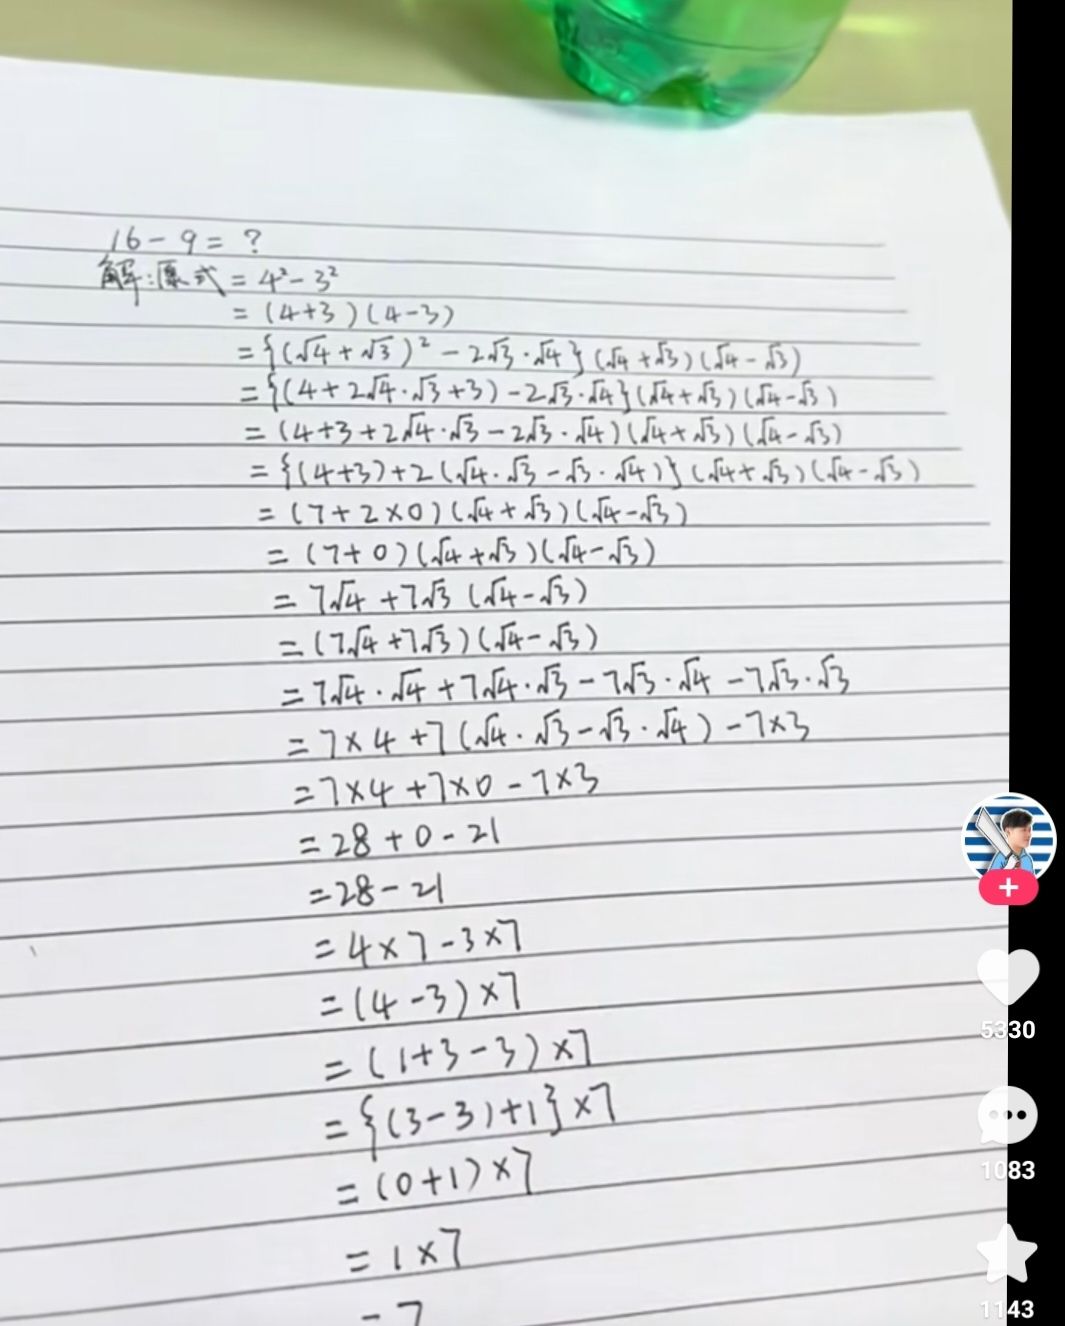 16-9=?
解:原式=4²-3²
=(4+3)(4-3)
={(√4+√3)²-2√3·√4}(√4+√3)(√4-√3)
={(4+2√4·√3+3)-2√3·√4}(√4+√3)(√4-√3)
=(4+3+2√4·√3-2√3·√4)(√4+√3)(√4-√3)
={(4+3)+2(√4·√3-√3·√4)}(√4+√3)(√4-√3)
=(7+2×0)(√4+√3)(√4-√3)
=(7+0)(√4+√3)(√4-√3)
=7√4+7√3(√4-√3)
=(7√4+7√3)(√4-√3)
=7√4·√4+7√4·√3-7√3·√4-7√3·√3
=7×4+7(√4·√3-√3·√4)-7×3
=7×4+7×0-7×3
=28+0-21
=28-21
=4×7-3×7
=(4-3)×7
=(1+3-3)×7
={(3-3)+1}×7
=(0+1)×7
=1×7
=7
5330
1083
1143